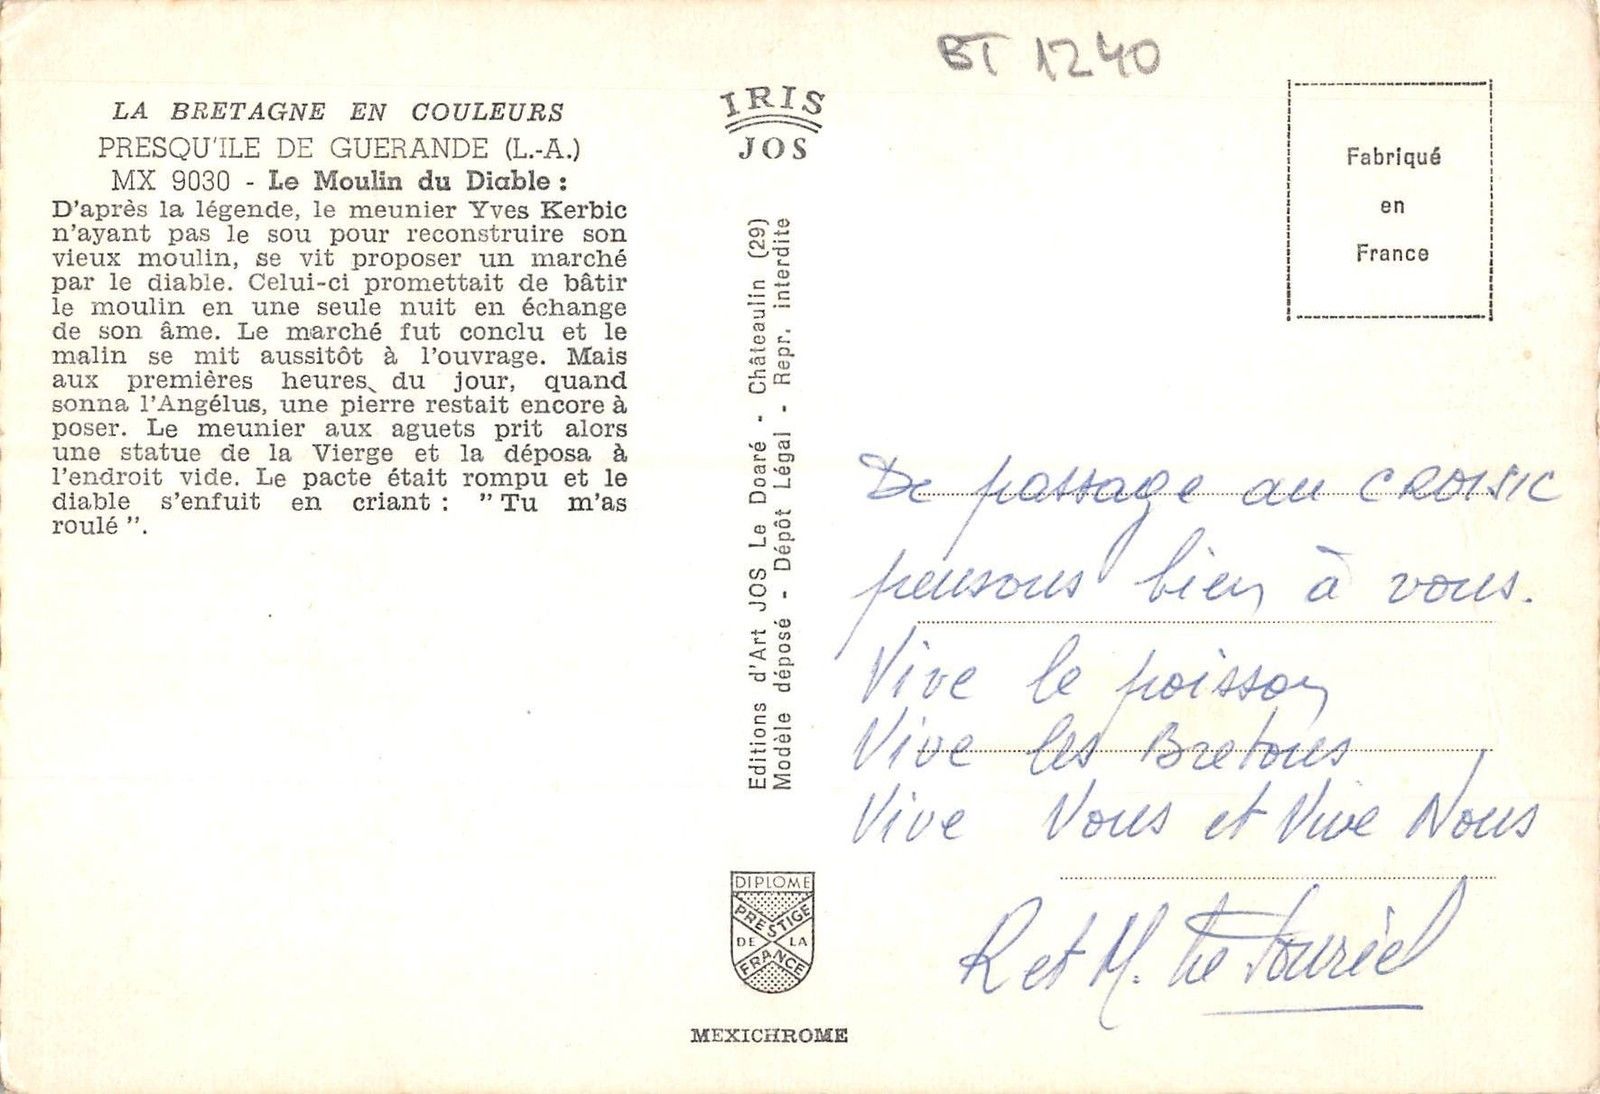 BT 1240
LA BRETAGNE EN COULEURS
PRESQU'ILE DE GUERANDE (L.-A.)
MX 9030 - Le Moulin du Diable :
D'après la légende, le meunier Yves Kerbic
n'ayant pas le sou pour reconstruire son
vieux moulin, se vit proposer un marché
par le diable. Celui-ci promettait de bâtir
le moulin en une seule nuit en échange
de son âme. Le marché fut conclu et le
malin se mit aussitôt à l'ouvrage. Mais
aux premières heures du jour, quand
sonna l'Angélus, une pierre restait encore à
poser. Le meunier aux aguets prit alors
une statue de la Vierge et la déposa à
l'endroit vide. Le pacte était rompu et le
diable s'enfuit en criant : " Tu m'as
roulé ".
IRIS
JOS
Editions d'Art JOS Le Doaré - Châteaulin (29)
Modèle déposé - Dépôt Légal - Repr. interdite
DIPLOME
PRESTIGE
DE LA
FRANCE
MEXICHROME
Fabriqué
en
France
De passage au CROISIC
pensons bien à vous.
Vive le poisson
Vive les Bretons
Vive Vous et Vive Nous
R et M.